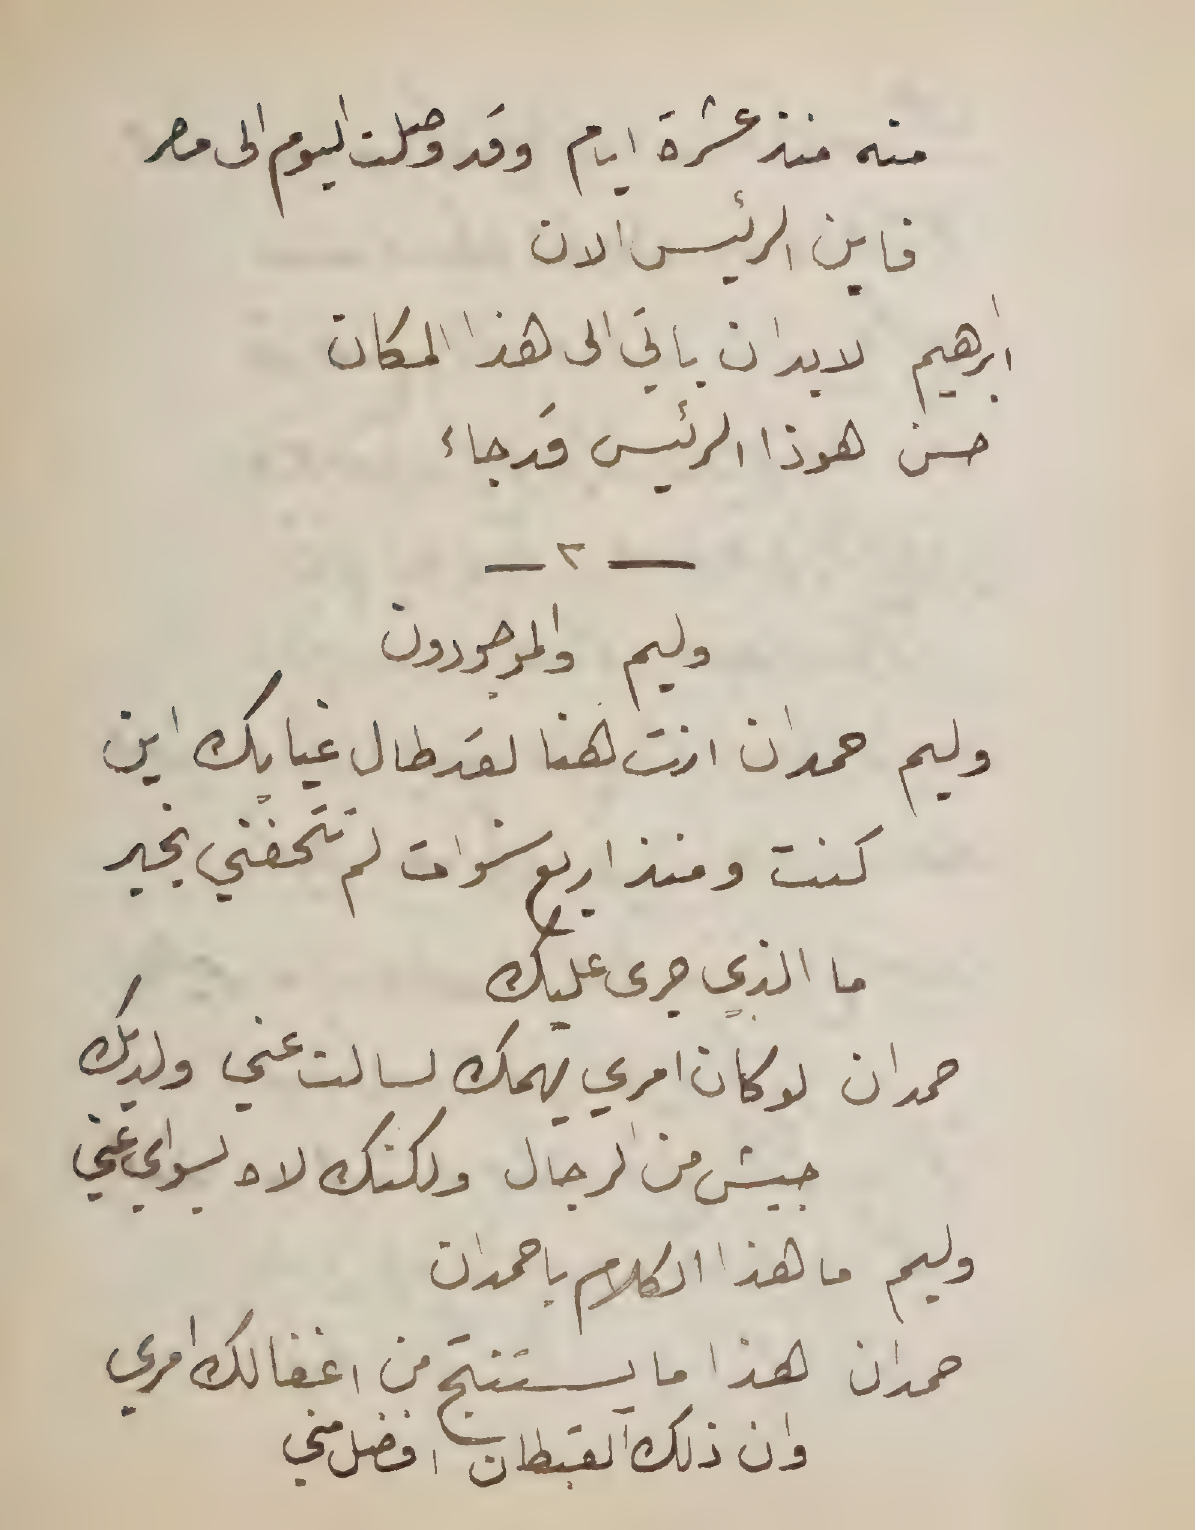 منه منذ عشرة ايام وقد وصلت اليوم الى مصر
فاين الرئيس الان
ابرهيم لابد ان ياتي الى هذا المكان
حسن هوذا الرئيس قد جاء
— ٢ —
وليم والموجودون
وليم حمدان انت هنا لقد طال غيابك اين
كنت ومنذ اربع سنوات لم تتحفني بخبر
ما الذي جرى عليك
حمدان لو كان امري يهمك لسالت عني ولديك
جيش من الرجال ولكنك لاه بسواي عني
وليم ما هذا الكلام يا حمدان
حمدان هذا ما يستنتج من اغفالك امري
وان ذلك القبطان افضل مني